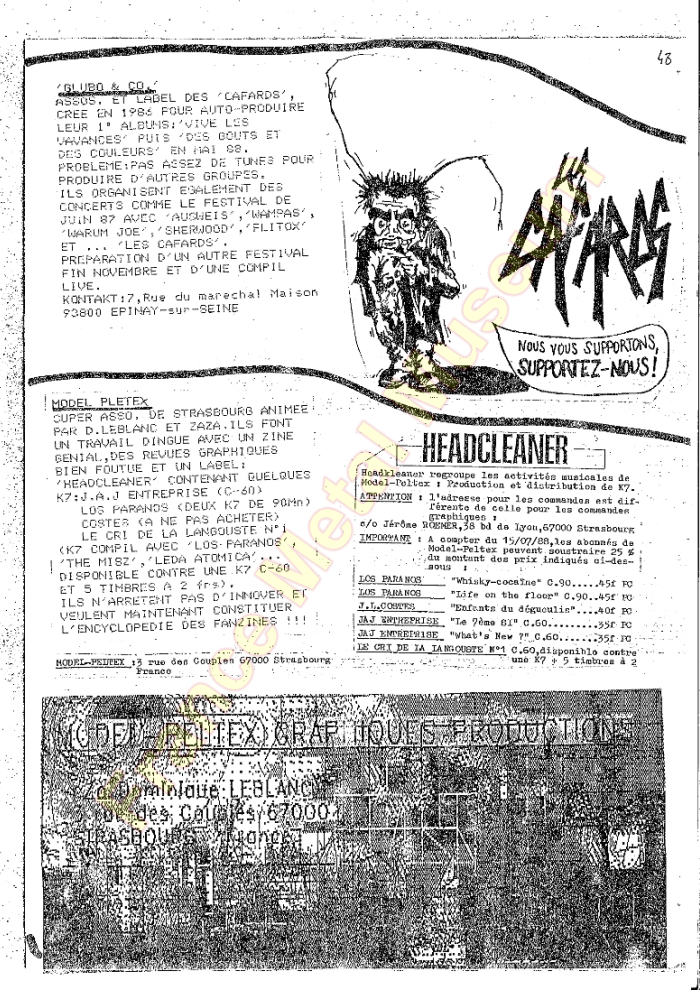 48
'GLUBO & CO.'
ASSOS. ET LABEL DES 'CAFARDS',
CREE EN 1986 POUR AUTO-PRODUIRE
LEUR 1° ALBUMS:'VIVE LES
VAVANCES' PUIS 'DES GOUTS ET
DES COULEURS' EN MAI 88.
PROBLEME:PAS ASSEZ DE TUNES POUR
PRODUIRE D'AUTRES GROUPES.
ILS ORGANISENT EGALEMENT DES
CONCERTS COMME LE FESTIVAL DE
JUIN 87 AVEC 'AUSWEIS','WAMPAS',
'WARUM JOE','SHERWOOD','FLITOX'
ET ... 'LES CAFARDS'.
PREPARATION D'UN AUTRE FESTIVAL
FIN NOVEMBRE ET D'UNE COMPIL
LIVE.
KONTAKT:7,Rue du marechal Maison
93800 EPINAY-sur-SEINE
LES
CAFARDS
NOUS VOUS SUPPORTONS,
SUPPORTEZ-NOUS!
MODEL PLETEX
SUPER ASSO. DE STRASBOURG ANIMEE
PAR D.LEBLANC ET ZAZA.ILS FONT
UN TRAVAIL DINGUE AVEC UN ZINE
GENIAL,DES REVUES GRAPHIQUES
BIEN FOUTUE ET UN LABEL:
'HEADCLEANER' CONTENANT QUELQUES
K7:J.A.J ENTREPRISE (C-60)
LOS PARANOS (DEUX K7 DE 90Mn)
COSTES (A NE PAS ACHETER)
LE CRI DE LA LANGOUSTE N°1
(K7 COMPIL AVEC 'LOS PARANOS',
'THE MISZ','LEDA ATOMICA'...
DISPONIBLE CONTRE UNE K7 C-60
ET 5 TIMBRES A 2 frs).
ILS N'ARRETENT PAS D'INNOVER ET
VEULENT MAINTENANT CONSTITUER
L'ENCYCLOPEDIE DES FANZINES !!!
MODEL-PELTEX :3 rue des Couples 67000 Strasbourg
France
HEADCLEANER
Headkleaner regroupe les activités musicales de
Model-Peltex : Production et distribution de K7.
ATTENTION : l'adresse pour les commandes est dif-
férente de celle pour les commandes
graphiques :
c/o Jérôme ROEMER,38 bd de Lyon,67000 Strasbourg
IMPORTANT : A compter du 15/07/88,les abonnés de
Model-Peltex peuvent soustraire 25 %
du montant des prix indiqués ci-des-
sous :
LOS PARANOS "Whisky-cocaïne" C.90.....45f PC
LOS PARANOS "Life on the floor" C.90..45f PC
J.L.COSTES "Enfants du dégueulis"...40f PC
JAJ ENTREPRISE "Le 7ème SI" C.60........35f PC
JAJ ENTREPRISE "What's New ?" C.60......35f PC
LE CRI DE LA LANGOUSTE N°1 C.60,disponible contre
une K7 + 5 timbres à 2
MODEL-PELTEX GRAPHIQUES PRODUCTIONS
c/o Dominique LEBLANC
3 rue des Couples 67000
STRASBOURG (France)
France Metal Museum